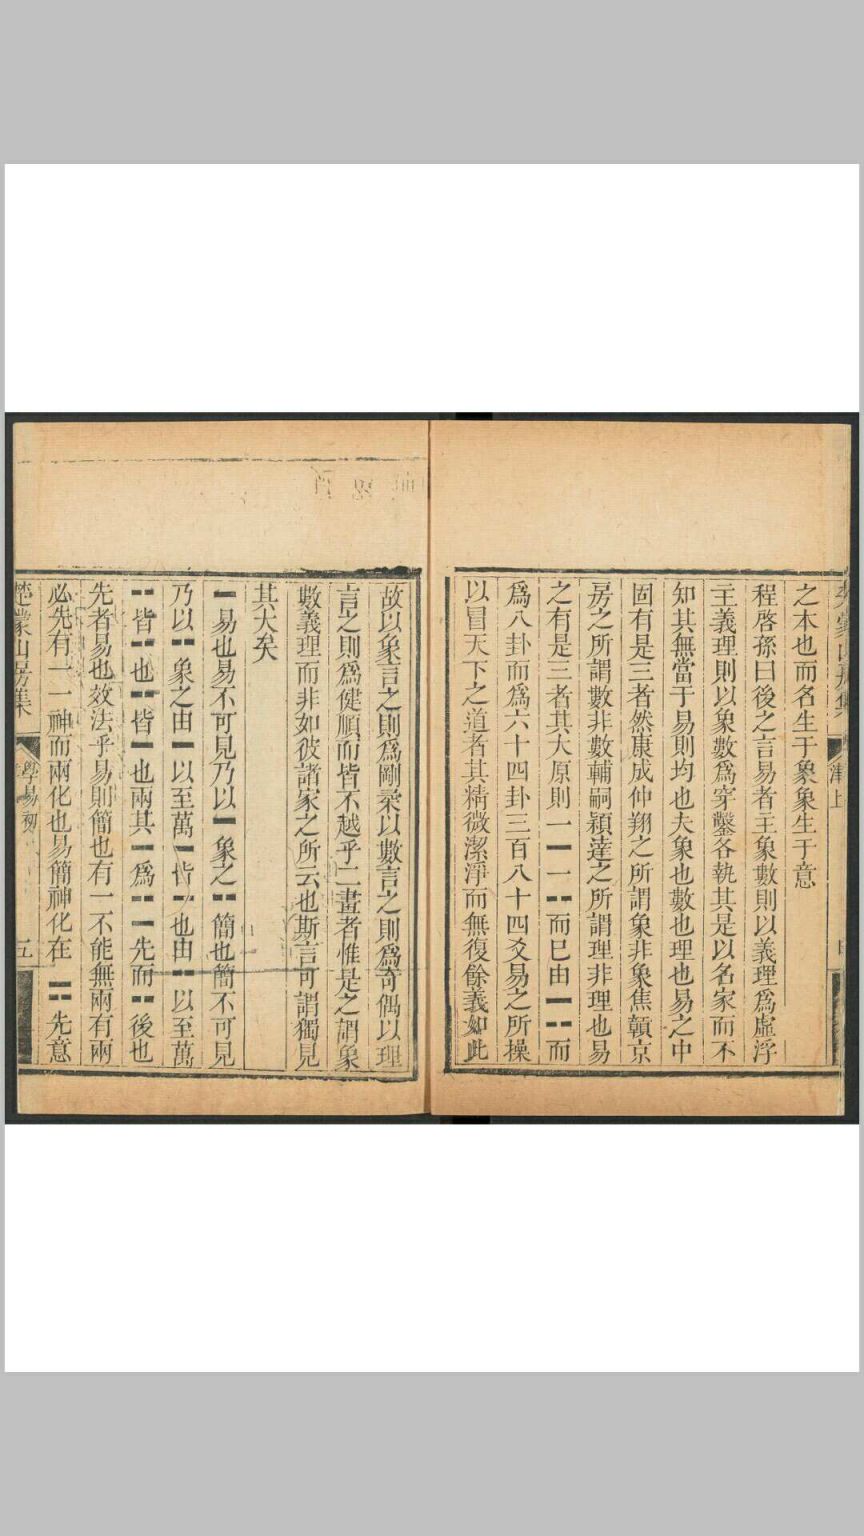 之本也而名生于象象生于意
程啓孫曰後之言易者主象數則以義理爲虛浮
主義理則以象數爲穿鑿各執其是以名家而不
知其無當于易則均也夫象也數也理也易之中
固有是三者然康成仲翔之所謂象非象焦贛京
房之所謂數非數輔嗣穎達之所謂理非理也易
之有是三者其大原則一⚊一⚋而已由⚊⚋而
爲八卦而爲六十四卦三百八十四爻易之所操
以冒天下之道者其精微潔淨而無復餘義如此
故以象言之則爲剛柔以數言之則爲奇偶以理
言之則爲健順而皆不越乎二畫者惟是之謂象
數義理而非如彼諸家之所云也斯言可謂獨見
其大矣
⚊易也易不可見乃以⚊象之⚋簡也簡不可見
乃以⚋象之由⚊以至萬⚊皆⚊也由⚋以至萬
⚋皆⚋也⚋皆⚊也兩其⚊爲⚋⚊先而⚋後也
先者易也效法乎易則簡也有一不能無兩有兩
必先有一一神而兩化也易簡神化在⚊⚋先意
楚蒙山房集
學易初
五